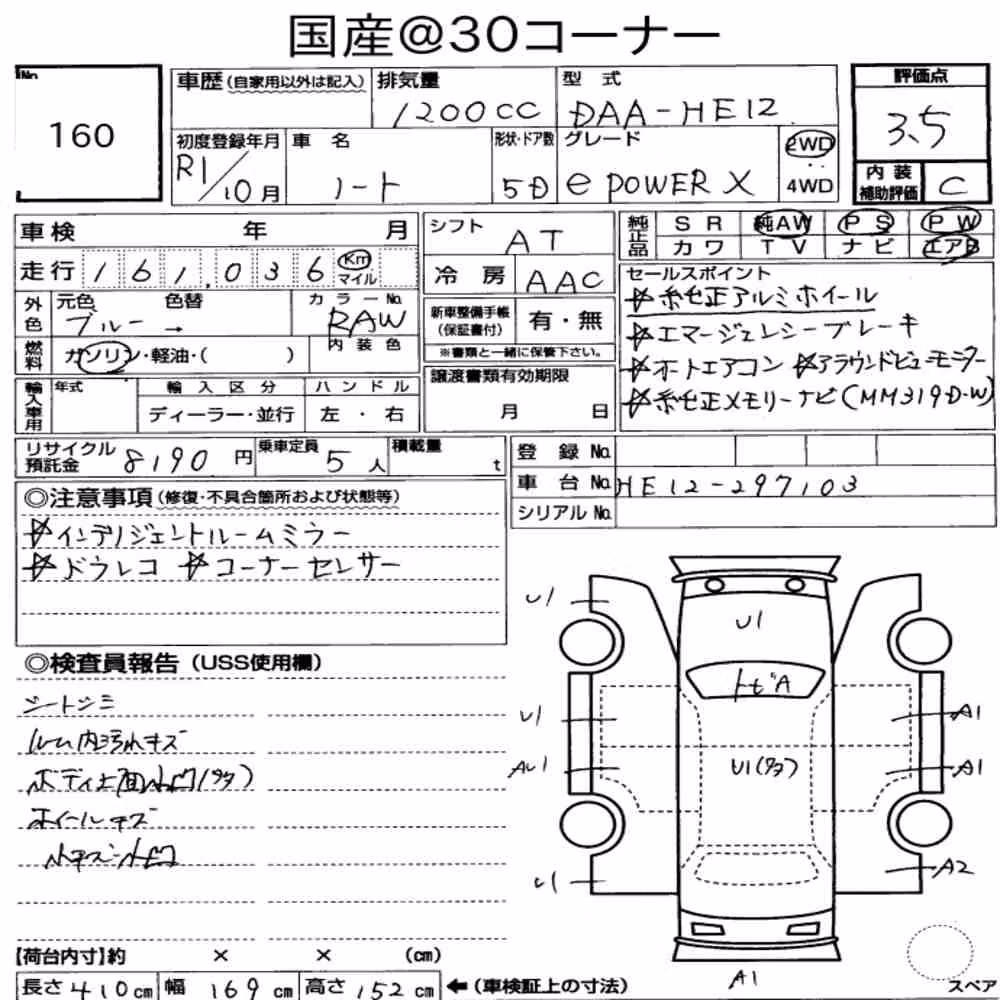 国産@30コーナー
No.
160
車歴(自家用以外は記入)
排気量
1200cc
型 式
DAA-HE12
評価点
3.5
初度登録年月
R1/10月
車 名
ノート
形状・ドア数
5D
グレード
e POWER X
2WD
4WD
内 装
補助評価
C
車検 年 月
走行 161,036 Km マイル
シフト
AT
純正品
S R 純AW P S P W
カ ワ T V ナ ビ エアB
冷 房
AAC
セールスポイント
☆純正アルミホイール
☆エマージェンシーブレーキ
☆オートエアコン ☆アラウンドビューモニター
☆純正メモリーナビ(MM319D-W)
外色
元色 色替
ブルー →
カラーNo.
RAW
新車整備手帳
(保証書付)
有・無
※書類と一緒に保管下さい。
燃料
ガソリン・軽油・( )
内 装 色
譲渡書類有効期限
月 日
輸入車用
年式
輸 入 区 分
ディーラー・並行
ハ ン ド ル
左 ・ 右
リサイクル
預託金
8190 円
乗車定員
5 人
積載量
t
登 録 No.
車 台 No. HE12-297103
シリアル No.
◎注意事項(修復・不具合箇所および状態等)
☆インテリジェントルームミラー
☆ドラレコ ☆コーナーセンサー
◎検査員報告(USS使用欄)
シートシミ
ルーム内汚れキズ
ボディ上面小凹(多)
ホイールキズ
小キズ小凹
U1
U1
トビA
U1
A1
AU1
U1(多)
A1
U1
A2
A1
スペア
【荷台内寸】約 × × (cm)
長さ 410 cm 幅 169 cm 高さ 152 cm ←(車検証上の寸法)